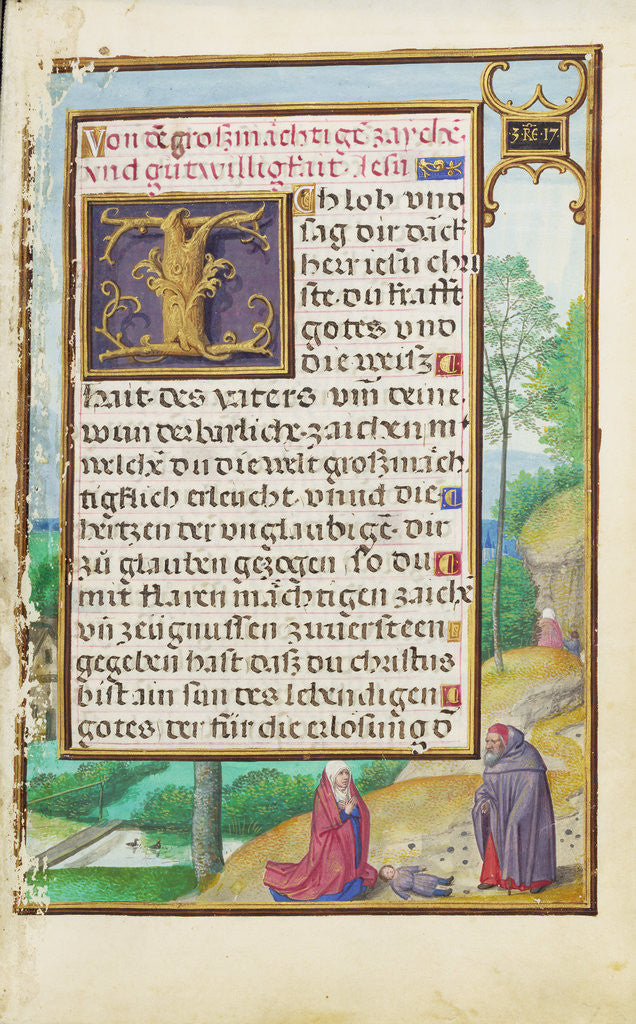 ·3·RE·17·
Von dē großmächtigē zaychē
vnd gutwilligkait Jesu
I
Ch lob vnd
sag dir dāck
herr iesu chri
ste· du krafft
gotes vnd
die weisz
hait· des vaters vm̄ deine
wunderbarliche· zaichen mͭ
welchē du die welt großmäch
tigklich erleucht vnnd die
hertzen der vnglaubigē· dir
zů glauben gezogen so du
mit klaren mächtigen zaichē
vn̄ zeügnussen zuuersteen
gegeben hast daß du christus
bist ain sun des lebendigen
gotes der für die erlösung d̄